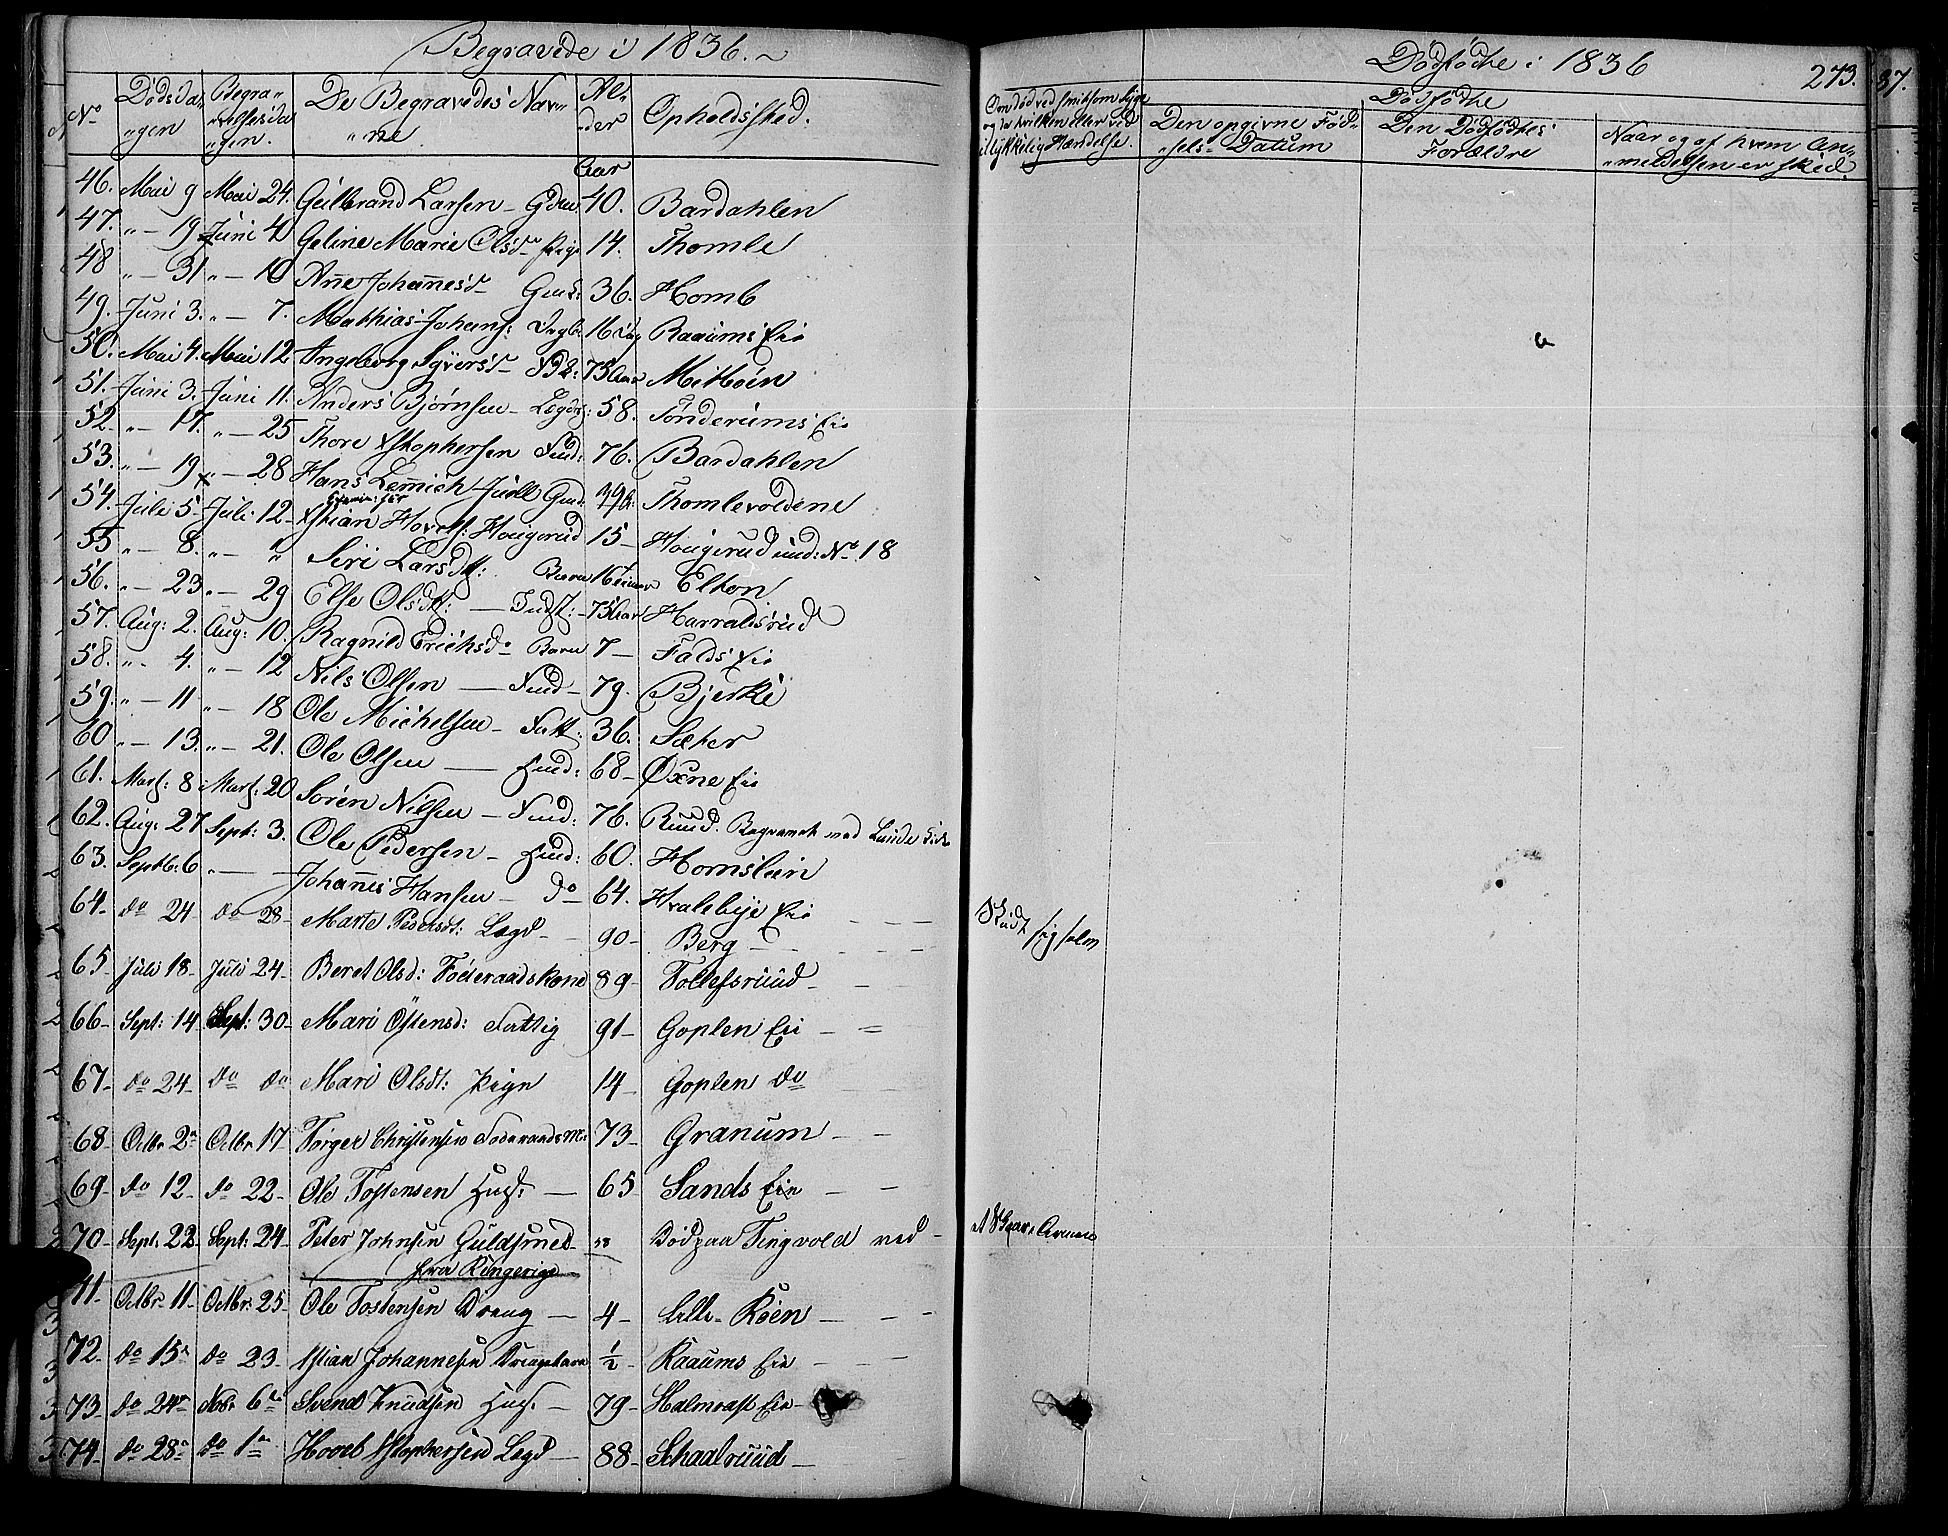 Begravede i 1836.
No Dødsdagen Begravelsesdagen. De Begravedes Navne Alder Opholdssted.
Aar
46. Mai 9 Mai 24. Gulbrand Larsen 40. Bardahlen
47. " — 19 Juni 4 Geline Marie Olsd. Pige 14. Thomle
48 " — 31 " — 10 Anne Johannesd. 36. Homb
49. Juni 3. " — 7. Mathias Johans: 16 Dag Raaums Eie
50. Mai 4. Mai 12 Ingeborg Syversd. 73 Aar Mithøen
51. Juni 3. Juni 11. Anders Bjørnsen — Lægds: 58. Tønderums Eie
52. " — 17. " — 25 Thore Xstophersen 76. Bardahlen
53. " — 19 " — 28 Hans Lemich Juell Thomlevoldene
54. Juli 5 Juli 12 Xstian Hovels: Hougerud 15 — Hougerud und: No 18
55 " — 8. " — " Siri Larsdtt: Barn 16 Timer Elton
56. " — 23 " — 29 Else Olsdtt: — Indst: — 75 Aar Harraldsrud
57. Aug: 2. Aug: 10. Ragnild Erichsd. Barn 7 — Falds Eie
58. " — 4. " — 12 Nils Olsen — 79. Bjerke
59. " — 11 " — 18 Ole Michelsen — Fatt: 36. Sæter
60 " — 13. " — 21. Ole Olsen — Huusd: 68 — Øxne Eie
61. Marts: 8 Marts: 20 Søren Nilsen — 76. Ruud. Begravet ved Lunde Kirke
62. Aug: 27 Sept: 3. Ole Pedersen — Huusd: 60. Hornslien
63. Septb: 6 " — — Johannes Hansen — do 64. Hvalebye Eie
64 — do 24 do 28 — Marte Pedersdt: Legd — 90 — Berg
65 — Juli 18 — Juli 24 — Beret Olsd: Føderaadskone 89 — Tollefsruud —
66 — Sept: 14 Sept: 30 — Mari Østensd: Fattig 91 — Goplen Eie
67 — do 24 — do do Mari Olsdt: Pige 14 — Goplen do
68 — Octbr 2 Octbr 17 Torger Christensen Føderaadsm. 73 — Granum —
69 — do 12 — do 22 — Ole Tostensen Husm. — 65 Sands Eie
70 — Sept: 22 — Sept: 24 — Peter Johnsen Guldsmed 58 Død paa Tingvold ved —
fra Ringerige
71. Octbr. 11 — Octbr: 25 — Ole Tostensen Dreng — 4 — Lille-Røen —
72 — do 15 do 23 — Xstian Johannesen Drengebarn ½ — Raaums Eie —
73 — do 24 Nobr 6te Svend Knudsen Husm. — 79 — Halmrast Eie —
74 — do 28 do 1 Hovel Xstophersen Legd — 88 — Schaalruud —
Dødfødte i 1836 273.
Om død ved smitsom Syge og da hvilken eller ved ulykkelig Hændelse.
Dødfødte
Den opgivne Fødsels-Datum
Den Dødfødtes Forældre
Naar og af hvem Anmeldelsen er skeed.
Skudt sig selv
37.